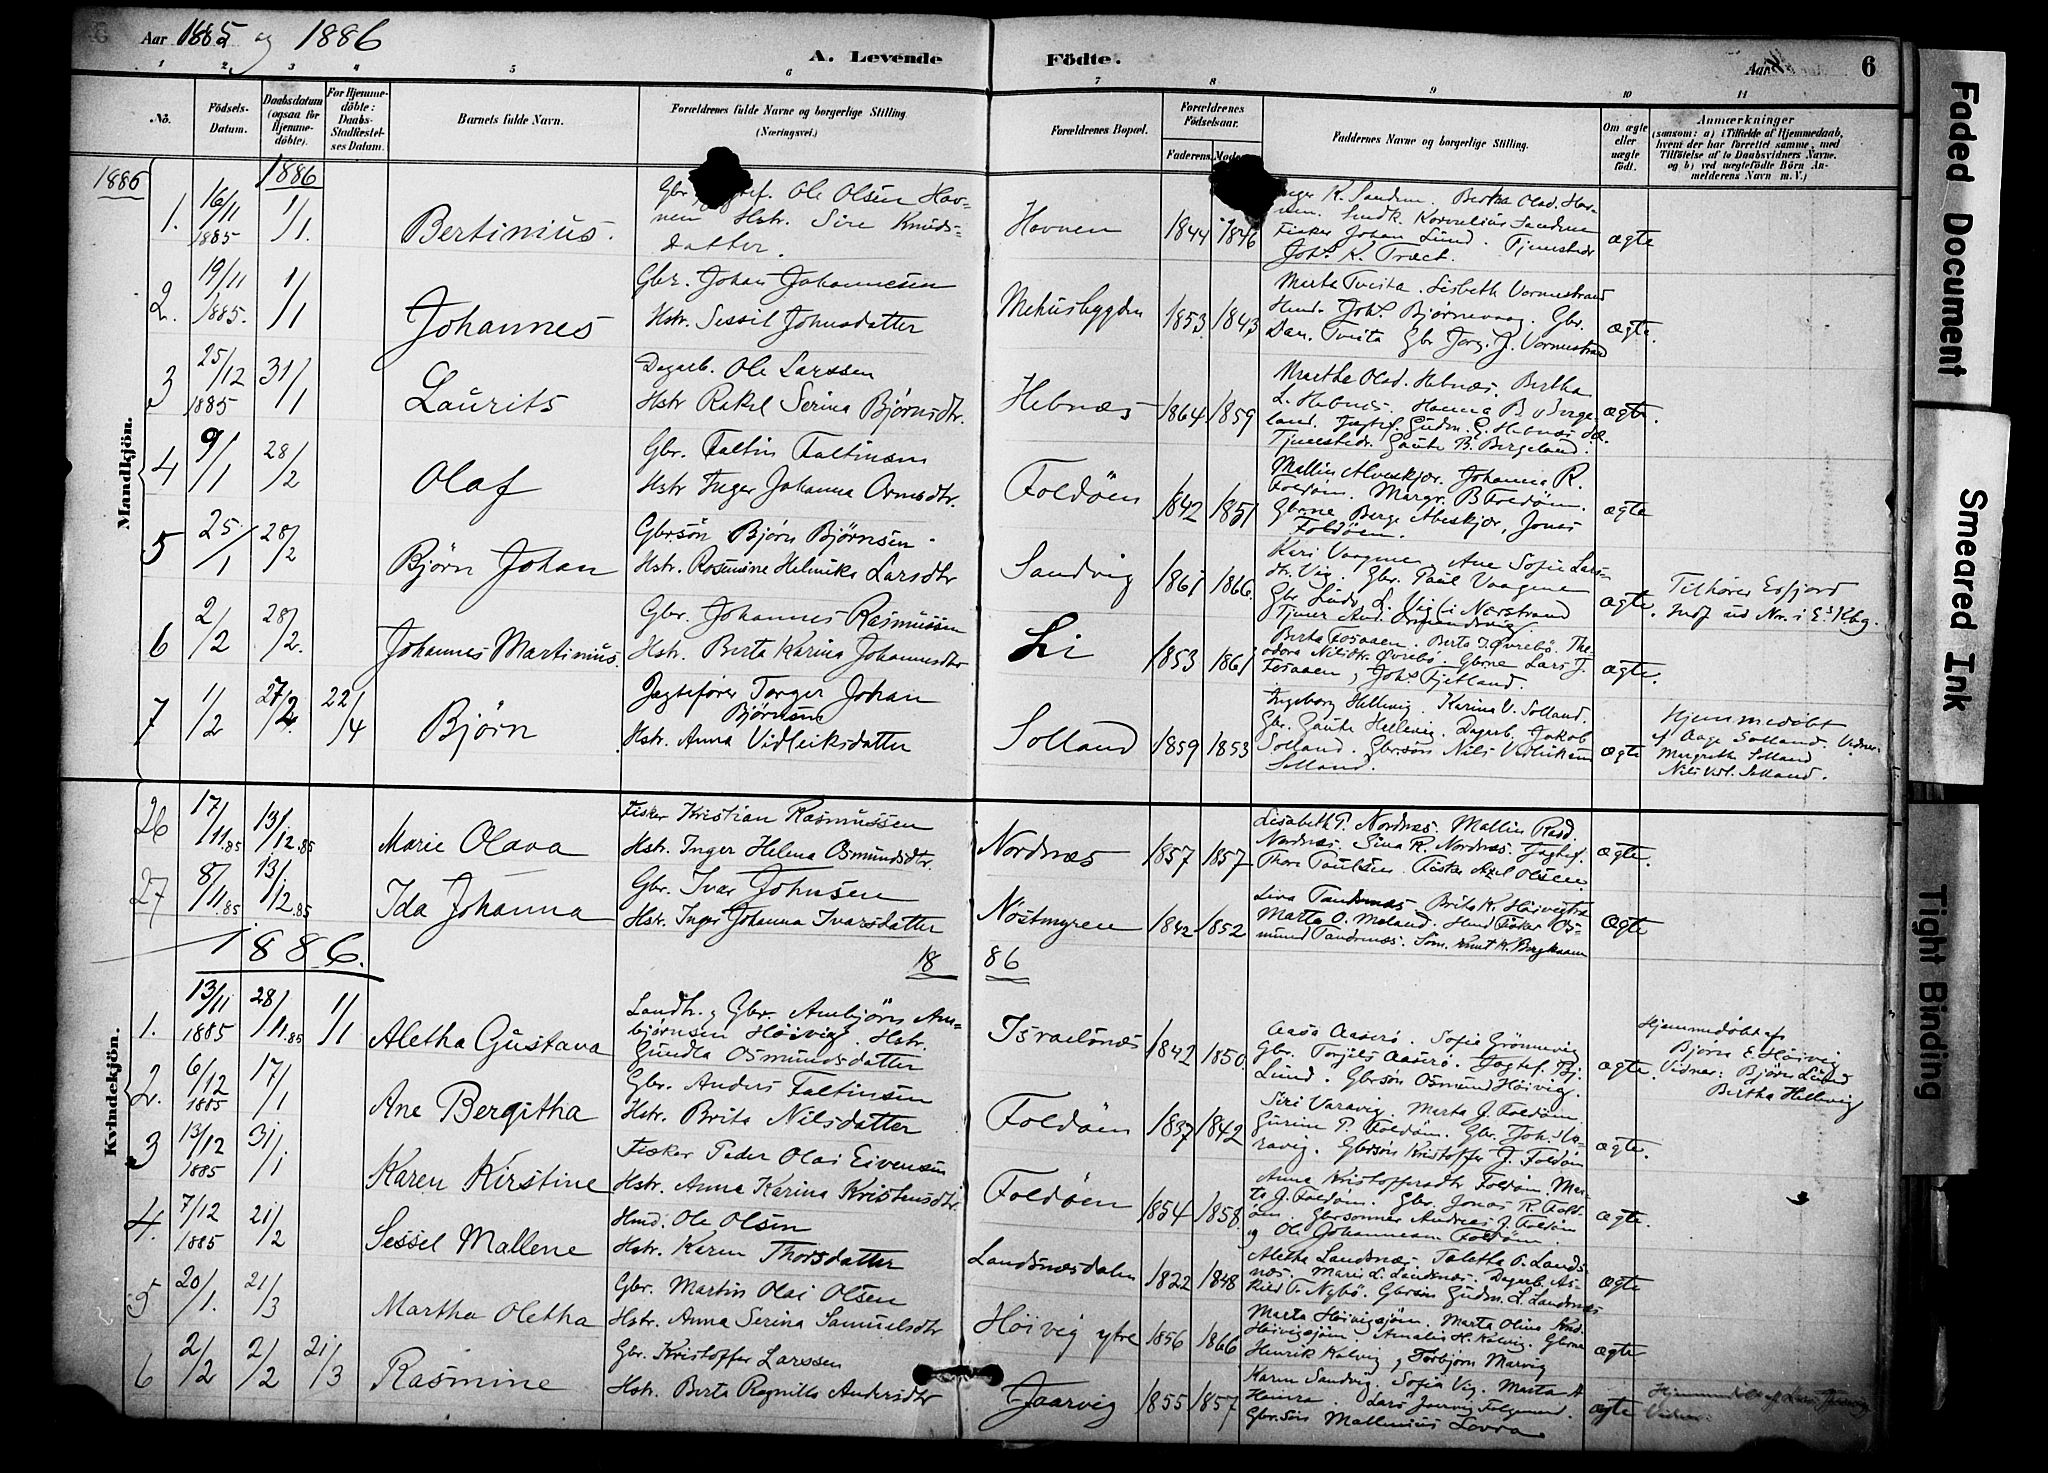 Aar 1885 og 1886
A. Levende Födte.
Aar 6
1 2 3 4 5 6 7 8 9 10 11
Nö.
Födsels-Datum.
Daabsdatum (ogsaa för Hjemme-döbte).
For Hjemme-döbte: Daabs-Stadfæstel-ses Datum.
Barnets fulde Navn.
Forældrenes fulde Navne og borgerlige Stilling (Næringsvei.)
Forældrenes Bopæl.
Forældrenes Födselsaar.
Faderens.
Fadderнes Navne og borgerlige Stilling.
Om ægte eller uægte födt.
Anmærkninger
(saasom: a) i Tilfælde af Hjemmedaab, hvem der har forrettet samme, med Tilföielse af to Daabsvidners Navne. og b) ved uægtefödte Börn An-melderens Navn m. V.)
1886
1886
Mandkjön.
1. 16/11 1885 1/1. Bertinius. Gbr Ole Olsen Hav-nen Hstr. Sire Knuds-datter. Havnen 1844 1846 K. Sandem. Bertha Olad. Hav-nen. Smdk. Kornelius Sandem Fisker Johan Lund. Tjenestedr Johs K. Træet. ægte
2. 19/11 1885. 1/1 Johannes Gbr. Johan Johannesen Hstr. Sessil Johnsdatter Mehusbygden 1853 1843 Marta Tveita. Lisbeth Vormestrand Hmd. Johs Bjørnevaag. Gbr. Dan. Tveita Gbr Jorg. J. Vormestrand ægte.
3 25/12 1885 31/1 Laurits Dagarb. Ole Larssen Hstr Rakel Serina Bjørnsdtr. Hebnæs 1864 1859 Marthe Olad. Hebnæs. Bertha L. Hebnæs. Hanna B. Berge-land. Jagtef. Gudm. G. Hebnæs Tjenestedr. Gaute B. Bergeland. ægte.
4 9/1 28/2 Olaf Gbr. Faltin Faltinsen Hstr Inger Johanna Ormsdtr. Foldöen 1842 1851 Mallin Alveskjær. Johanna R. Foldöen. Margr. B Foldöen. Gbrne Berge Alveskjær, Jonas Foldöen. ægte
5 25/1 28/2 Björn Johan Gbrsön Bjørn Bjørnsen Hstr. Rosemine Helmike Larsdtr Sandvig 1861 1866. Kari Vaagene Ane Sofie Lars-dtr. Vig. Gbr. Paul Vaagene Gbr Lind. L. Vig i Nærstrand Tjener And. ægte. Tilhører Esfjord Indf. ud Nr. i Es Kbg.
6 2/2 28/2. Johannes Martinius. Gbr. Johannes Rasmussen Hstr. Berta Karina Johannesdtr Li 1853 1861 Berta Fosaaen. Berta J. Øvrebö. The-odora Nilsdtr. Øvrebö. Gbrne Lars J. Fosaaen, Johs Fjetland. ægte.
7 1/2 27/2. 22/4 Björn Jagtefører Torger Johan Björnsen Hstr. Anna Vidleiksdatter Solland 1859 1853 Ingeborg Hellevig. Karina V. Solland. Gbr. Gaute Hellevig. Dagarb. Jakob Solland. Gbrsön Nils Vidleiksen Solland. ægte Hjemmedöbt af Aage Solland. Vidner Margretha Solland Nils Vidl. Solland.
Kvindekjön.
26 17/11.85 13/12.85 Marie Olava Fisker Kristian Rasmussen Hstr. Inger Helena Osmundsdtr. Nordnæs 1857 1857 Lisabeth P. Nordnæs. Mallin Rasd. Nordnæs. Sina R. Nordnæs. Jagtef. Thore Paulsen. Fisker Axel Olsen. ægte.
27 8/11.85 13/12.85 Ida Johanna Gbr. Ivar Johnsen Hstr. Inger Johanna Ivarsdatter Nöstmyren 1842 1852 Liva Tandenæs Brita K. Höivigtræ Marta O. Meland. Hmd Fisker Os-mund Tandenæs. Søm. Knut K. Berghavn ægte
1886. 18 86
1. 13/11 1885 28/11.85 1/1 Aletha Gustava Landh. og Gbr. Ambjörn Am-bjørnsen Höivig. Hstr. Gundla Osmundsdatter Israelsnæs 1842 1850 Aasa Aaserö. Sofie Grönnevig Gbr. Torjils Aaserö. Jagtef. Bj. Lund. Gbrsön Osmund Höivig. ægte. Hjemmedöbt af Bjørn E. Höivig Vidner: Bjørn Lund Birtha Hellevig
2. 6/12 1885 17/1 Ane Bergitha Gbr. Anders Faltinsen Hstr. Brita Nilsdatter Foldöen 1837 1842 Siri Varavig. Marta J. Foldöen Gurine P. Foldöen. Gbr. Joh. Va-ravig. Gbrsön Kristoffer J. Foldöen ægte.
3 13/12 1885 31/1 Karen Kirstine Fisker Peder Olai Eivensen Hstr. Anna Karina Kristensdtr. Foldöen 1854 1858. Anna Kristoffersdtr Foldöen. Mar-ta J. Foldöen. Gbr. Jonas R. Fold-öen. Gbrsönner Andreas J. Foldöen og Ole Johannesen Foldöen. ægte.
4. 7/12 1885 21/2 Sessel Mallene Hmd. Ole Olsen Hstr. Karen Thorsdatter Landsnæsdalen 1822 1848 Aletha Landsnæs. Taletha O. Lands-næs. Marie L. Landsnæs. Dagarb. As-kild T. Nybö. Gbrsön Gudm. L. Landsnæs ægte
5 20/1. 21/3 Martha Oletha Gbr. Martin Olai Olsen Hstr. Anna Serina Samuelsdtr Höivig ytre 1856 1866 Marta Höivigsjöen. Marta Olina Knd. Höivigsjöen. Amalia H. Kalvig. Gbrne Henrik Kalvig og Torbjørn Marvig ægte
6 2/2 2/2 21/3 Rasmine Gbr. Kristoffer Larssen Hstr. Berta Ragnilla Andersdtr Jaarvig 1855 1857 Karen Sandvig. Sofia Vig. Marta A Heinra. Lars Jaarvig. Gbr. Sön Mallinius Lovra. ægte
Faded Document
Smeared Ink
Tight Binding